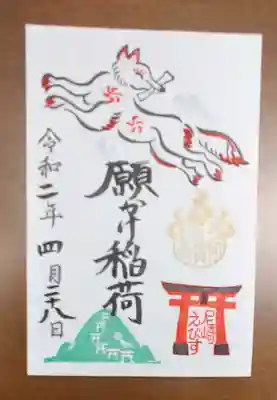 願かけ稲荷
令和二年 四月二十八日
尼崎
えびす